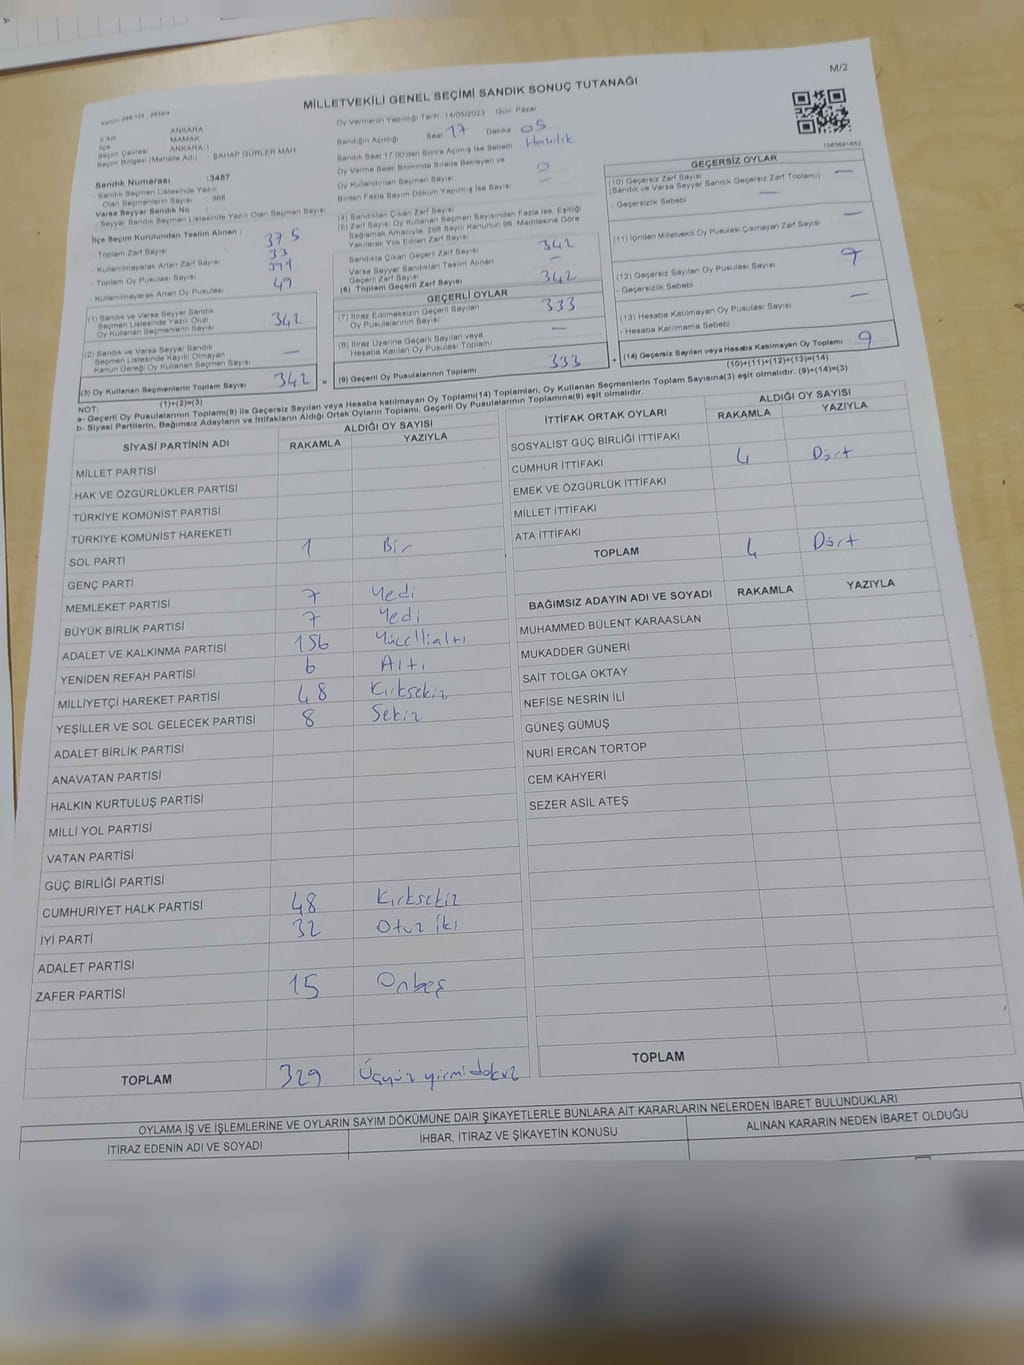 M/2
MİLLETVEKİLİ GENEL SEÇİMİ SANDIK SONUÇ TUTANAĞI
İli Adı : ANKARA
İlçe : MAMAK
Seçim Çevresi : ANKARA-1
Seçim Bölgesi (Mahalle Adı) : ŞAHAP GÜRLER MAH
Oy Vermenin Yapıldığı Tarih : 14/05/2023 Gün: Pazar
Sandığın Açıldığı Saat 17 Dakika 05
Sandık Saat 17.00'den Sonra Açılmış İse Sebebi
Oy Verme Saati Bitiminde Sırada Bekleyen ve
Oy Kullandırılan Seçmen Sayısı 0
Birden Fazla Sayım Döküm Yapılmış İse Sayısı —
Sandık Numarası :3487
- Sandık Seçmen Listesinde Yazılı
Olan Seçmenlerin Sayısı : 368
Varsa Seyyar Sandık No
- Seyyar Sandık Seçmen Listesinde Yazılı Olan Seçmen Sayısı
İlçe Seçim Kurulundan Teslim Alınan :
- Toplam Zarf Sayısı 375
- Kullanılmayarak Artan Zarf Sayısı 33
- Toplam Oy Pusulası Sayısı 391
- Kullanılmayarak Artan Oy Pusulası 49
(1) Sandık ve Varsa Seyyar Sandık
Seçmen Listesinde Yazılı Olup
Oy Kullanan Seçmenlerin Sayısı 342
(2) Sandık ve Varsa Seyyar Sandık
Seçmen Listesinde Kayıtlı Olmayan
Kanun Gereği Oy Kullanan Seçmen Sayısı —
(3) Oy Kullanan Seçmenlerin Toplam Sayısı 342 =
(1)+(2)=(3)
(4) Sandıktan Çıkan Zarf Sayısı
(5) Zarf Sayısı Oy Kullanan Seçmen Sayısından Fazla İse, Eşitliği
Sağlamak Amacıyla, 298 Sayılı Kanunun 98. Maddesine Göre
Yakılarak Yok Edilen Zarf Sayısı
Sandıkta Çıkan Geçerli Zarf Sayısı 342
Varsa Seyyar Sandıktan Teslim Alınan
Geçerli Zarf Sayısı —
(6) Toplam Geçerli Zarf Sayısı 342
GEÇERLİ OYLAR
(7) İtiraz Edilmeksizin Geçerli Sayılan
Oy Pusulalarının Sayısı 333
(8) İtiraz Üzerine Geçerli Sayılan veya
Hesaba Katılan Oy Pusulası Toplamı —
(9) Geçerli Oy Pusulalarının Toplamı 333 +
GEÇERSİZ OYLAR
(10) Geçersiz Zarf Sayısı
(Sandık ve Varsa Seyyar Sandık Geçersiz Zarf Toplamı) —
- Geçersizlik Sebebi : —
(11) İçinden Milletvekili Oy Pusulası Çıkmayan Zarf Sayısı —
(12) Geçersiz Sayılan Oy Pusulası Sayısı 9
- Geçersizlik Sebebi :
(13) Hesaba Katılmayan Oy Pusulası Sayısı —
- Hesaba Katılmama Sebebi :
(14) Geçersiz Sayılan veya Hesaba Katılmayan Oy Toplamı 9
(10)+(11)+(12)+(13)=(14)
NOT:
a- Geçerli Oy Pusulalarının Toplamı(9) ile Geçersiz Sayılan veya Hesaba katılmayan Oy Toplamı(14) Toplamları, Oy Kullanan Seçmenlerin Toplam Sayısına(3) eşit olmalıdır. (9)+(14)=(3)
b- Siyasi Partilerin, Bağımsız Adayların ve İttifakların Aldığı Ortak Oyların Toplamı, Geçerli Oy Pusulalarının Toplamına(9) eşit olmalıdır.
SİYASİ PARTİNİN ADI ALDIĞI OY SAYISI
RAKAMLA YAZIYLA
MİLLET PARTİSİ
HAK VE ÖZGÜRLÜKLER PARTİSİ
TÜRKİYE KOMÜNİST PARTİSİ
TÜRKİYE KOMÜNİST HAREKETİ
SOL PARTİ 1 Bir
GENÇ PARTİ
MEMLEKET PARTİSİ 7 Yedi
BÜYÜK BİRLİK PARTİSİ 7 Yedi
ADALET VE KALKINMA PARTİSİ 156 Yüzellialtı
YENİDEN REFAH PARTİSİ 6 Altı
MİLLİYETÇİ HAREKET PARTİSİ 48 Kırksekiz
YEŞİLLER VE SOL GELECEK PARTİSİ 8 Sekiz
ADALET BİRLİK PARTİSİ
ANAVATAN PARTİSİ
HALKIN KURTULUŞ PARTİSİ
MİLLİ YOL PARTİSİ
VATAN PARTİSİ
GÜÇ BİRLİĞİ PARTİSİ
CUMHURİYET HALK PARTİSİ 48 Kırksekiz
İYİ PARTİ 32 Otuz iki
ADALET PARTİSİ
ZAFER PARTİSİ 15 Onbeş
TOPLAM 329 Üçyüz yirmi dokuz
İTTİFAK ORTAK OYLARI ALDIĞI OY SAYISI
RAKAMLA YAZIYLA
SOSYALİST GÜÇ BİRLİĞİ İTTİFAKI
CUMHUR İTTİFAKI 4 Dört
EMEK VE ÖZGÜRLÜK İTTİFAKI
MİLLET İTTİFAKI
ATA İTTİFAKI
TOPLAM 4 Dört
BAĞIMSIZ ADAYIN ADI VE SOYADI RAKAMLA YAZIYLA
MUHAMMED BÜLENT KARAASLAN
MUKADDER GÜNERİ
SAİT TOLGA OKTAY
NEFİSE NESRİN İLİ
GÜNEŞ GÜMÜŞ
NURİ ERCAN TORTOP
CEM KAHYERİ
SEZER ASİL ATEŞ
TOPLAM
OYLAMA İŞ VE İŞLEMLERİNE VE OYLARIN SAYIM DÖKÜMÜNE DAİR ŞİKAYETLERLE BUNLARA AİT KARARLARIN NELERDEN İBARET BULUNDUKLARI
İTİRAZ EDENİN ADI VE SOYADI İHBAR, İTİRAZ VE ŞİKAYETİN KONUSU ALINAN KARARIN NEDEN İBARET OLDUĞU